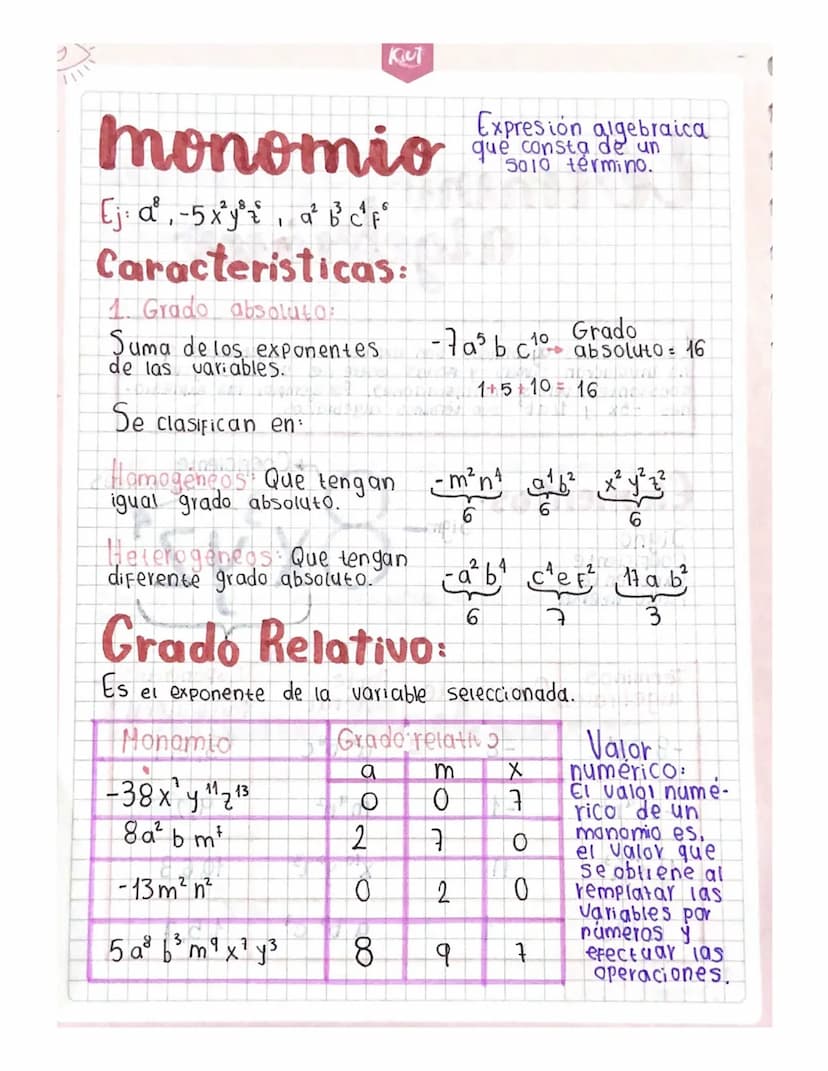 Kiut
monomio
Expresión algebraica
que consta de un
solo término.
Ej: a⁸, -5x²y⁸z⁵, a² b³ c⁴ f⁶
Características:
1. Grado absoluto:
Suma de los exponentes
de las variables.
-7a⁵ b c¹⁰ → Grado
absoluto = 16
1+5+10 = 16
Se clasifican en:
Homogéneos: Que tengan
igual grado absoluto.
-m²n⁴ a⁴b² x² y² z²
6 6 6
Heterogéneos: Que tengan
diferente grado absoluto.
-a² b⁴ c⁴ e f² 17 a b²
6 7 3
Grado Relativo:
Es el exponente de la variable seleccionada.
Monomio Grado relativo
a m x
-38x⁷ y¹¹ z¹³ 0 0 7
8a² b m⁷ 2 7 0
-13m² n² 0 2 0
5a⁸ b³ m⁹ x⁷ y³ 8 9 7
Valor
numérico:
El valor numé-
rico de un
monomio es,
el valor que
se obtiene al
remplazar las
variables por
números y
efectuar las
operaciones.